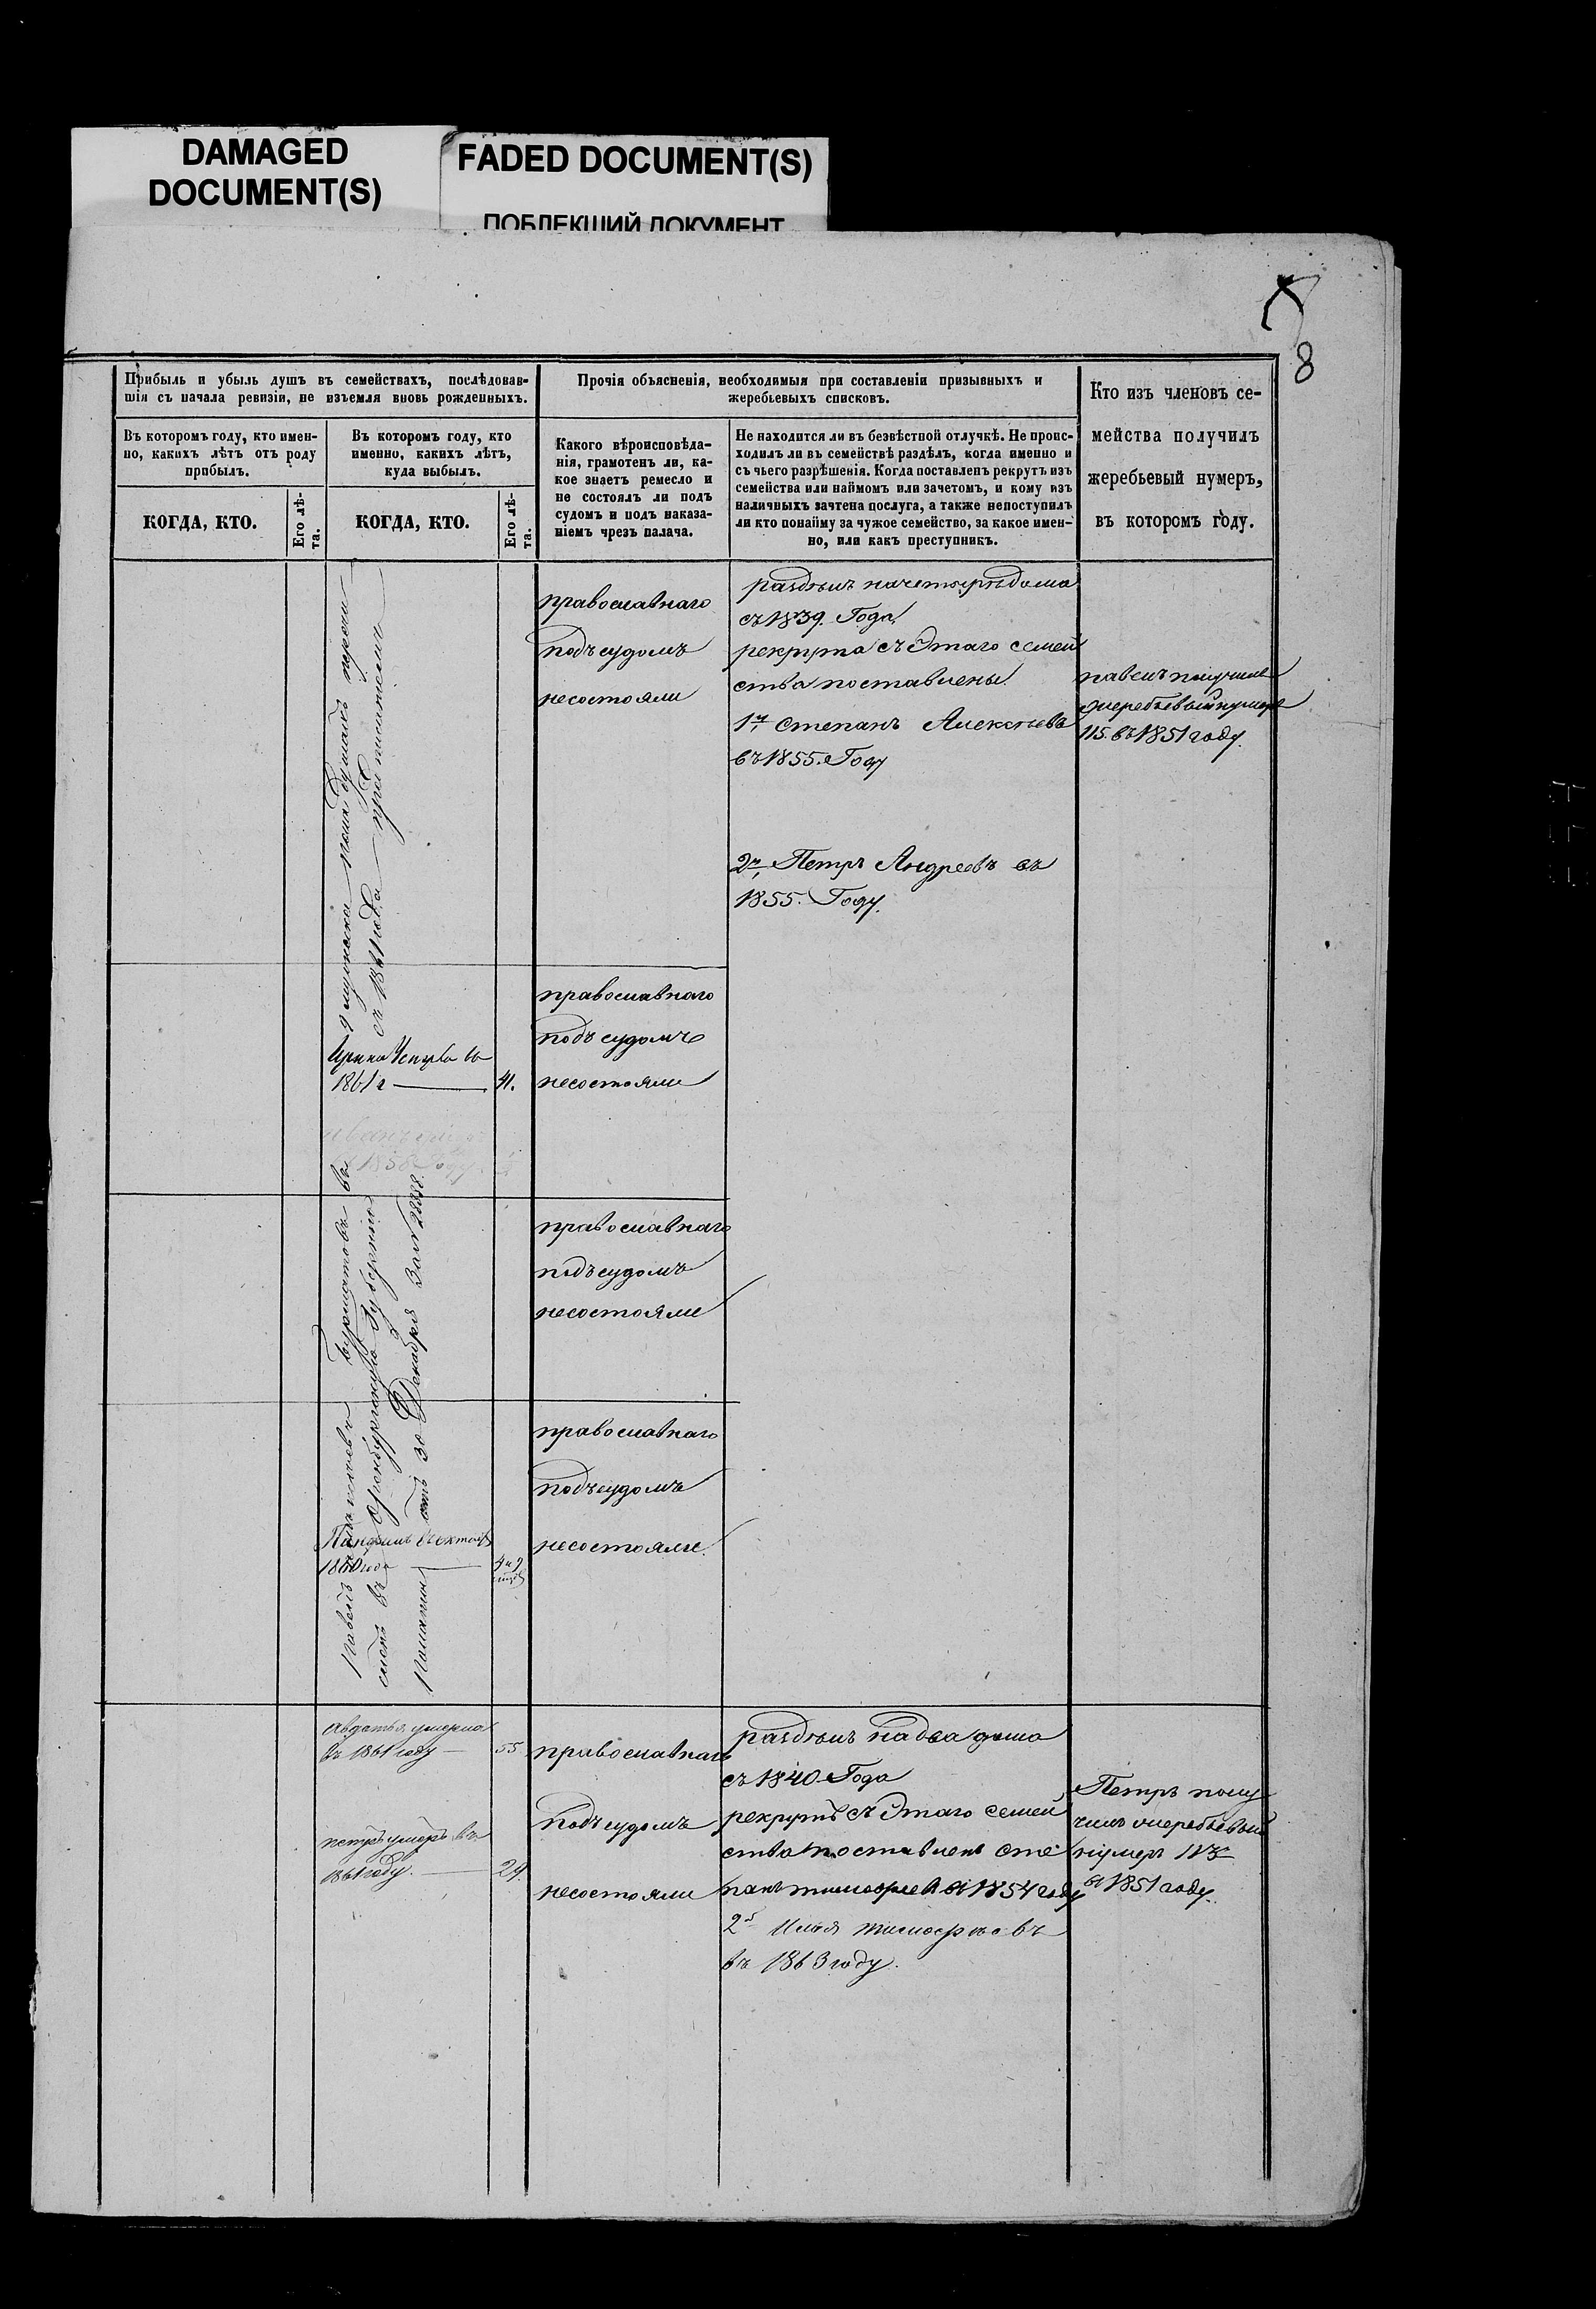 DAMAGED
DOCUMENT(S)
FADED DOCUMENT(S)
ПОБЛЕКШИЙ ДОКУМЕНТ
8
Прибыль и убыль душъ въ семействахъ, послѣдовав-
шія съ начала ревизіи, не изъемля вновь рожденныхъ.
Въ которомъ году, кто имен-
но, какихъ лѣтъ отъ роду
прибылъ.
КОГДА, КТО.
Его лѣ-
та.
Въ которомъ году, кто
именно, какихъ лѣтъ,
куда выбылъ.
КОГДА, КТО.
Его лѣ-
та.
Прочія объясненія, необходимыя при составленіи призывныхъ и
жеребьевыхъ списковъ.
Какого вѣроисповѣда-
нія, грамотенъ ли, ка-
кое знаетъ ремесло и
не состоялъ ли подъ
судомъ и подъ наказа-
ніемъ чрезъ палача.
Не находится ли въ безвѣстной отлучкѣ. Не проис-
ходилъ ли въ семействѣ раздѣлъ, когда именно и
съ чьего разрѣшенія. Когда поставленъ рекрутъ изъ
семейства или наймомъ или зачетомъ, и кому изъ
наличныхъ зачтена послуга, а также непоступилъ
ли кто понайму за чужое семейство, за какое имен-
но, или какъ преступникъ.
Кто изъ членовъ се-
мейства получилъ
жеребьевый нумеръ,
въ которомъ году.
съ 1861 года
1861 г
41.
въ 1858 Году
православнаго
подъ судомъ
несостояли
раздѣлъ
съ 1839. Года
рекрута съ Этаго семей
ства поставлены
1й Степанъ Алексѣевъ
въ 1855. Году
2й Петръ Андреевъ въ
1855. Году.
павелъ получилъ
жеребьевый нумеръ
115. въ 1851 году.
православнаго
подъ судомъ
несостояли
православнаго
подъ судомъ
несостояли
православнаго
подъ судомъ
несостояли
Павелъ
въ Оренбургскую Губернію
отъ 30 Декабря За №
1860 года
Авдотья умерла
въ 1861 году
55
петръ умеръ въ
1861 году.
29.
православнаго
подъ судомъ
несостояли
раздѣлъ на два дома
съ 1840 Года
рекрутъ съ Этаго семей
ства поставленъ Сте
панъ тимофеевъ въ 1854 году
2й Илья тимофѣевъ
въ 1863 году.
Петръ полу
чилъ жеребьевый
нумеръ
въ 1851 году.